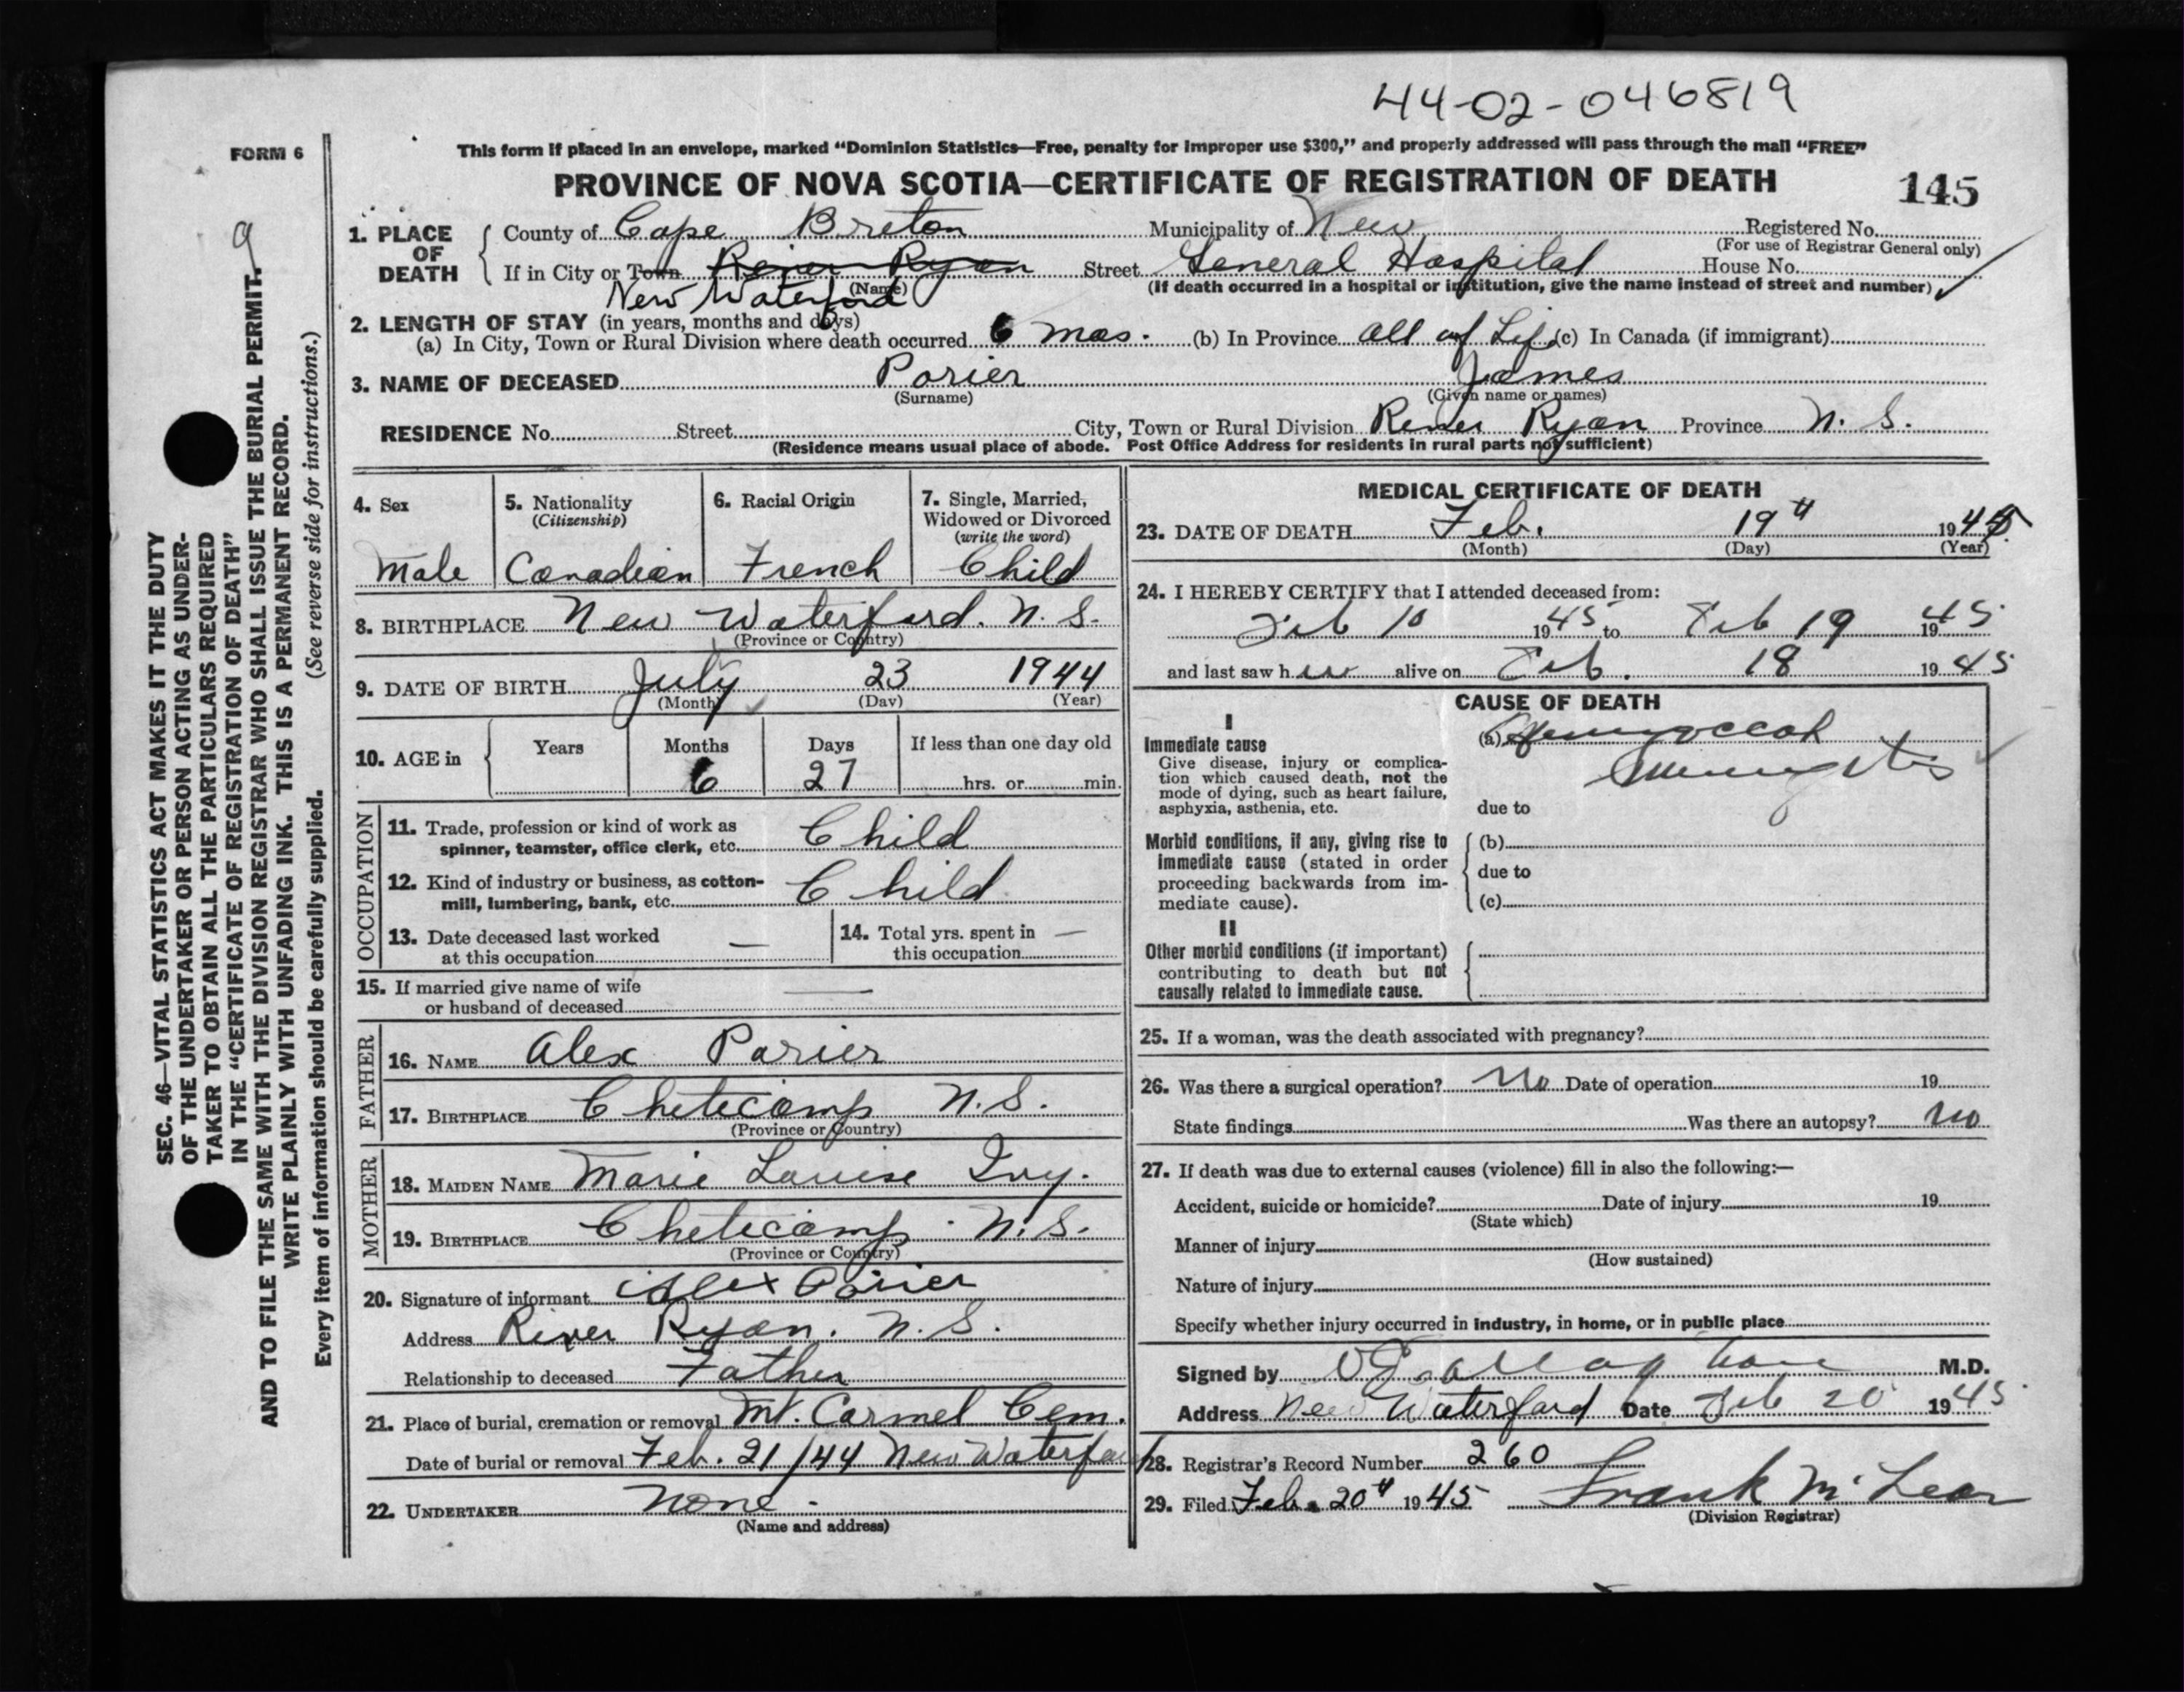 44-02-046819
FORM 6
This form if placed in an envelope, marked “Dominion Statistics—Free, penalty for improper use $300,” and properly addressed will pass through the mail “FREE”
PROVINCE OF NOVA SCOTIA—CERTIFICATE OF REGISTRATION OF DEATH 145
1. PLACE OF DEATH County of Cape Breton Municipality of New Registered No.
(For use of Registrar General only)
If in City or Town River Ryan Street General Hospital House No.
New Waterford (Name) (If death occurred in a hospital or institution, give the name instead of street and number)
2. LENGTH OF STAY (in years, months and days)
(a) In City, Town or Rural Division where death occurred 6 mos. (b) In Province all of Life (c) In Canada (if immigrant)
3. NAME OF DECEASED Porier James
(Surname) (Given name or names)
RESIDENCE No. Street City, Town or Rural Division River Ryan Province N. S.
(Residence means usual place of abode. Post Office Address for residents in rural parts not sufficient)
4. Sex 5. Nationality (Citizenship) 6. Racial Origin 7. Single, Married, Widowed or Divorced (write the word)
Male Canadian French Child
8. BIRTHPLACE New Waterford. N. S.
(Province or Country)
9. DATE OF BIRTH July 23 1944
(Month) (Day) (Year)
10. AGE in Years Months Days If less than one day old
6 27 hrs. or min.
OCCUPATION
11. Trade, profession or kind of work as
spinner, teamster, office clerk, etc. Child
12. Kind of industry or business, as cotton-
mill, lumbering, bank, etc. Child
13. Date deceased last worked
at this occupation —
14. Total yrs. spent in —
this occupation
15. If married give name of wife
or husband of deceased —
FATHER
16. NAME Alex Porier
17. BIRTHPLACE Cheticamp N.S.
(Province or Country)
MOTHER
18. MAIDEN NAME Marie Louise Ivy.
19. BIRTHPLACE Cheticamp N.S.
(Province or Country)
20. Signature of informant Alex Poirier
Address River Ryan. N. S.
Relationship to deceased Father
21. Place of burial, cremation or removal Mt. Carmel Cem.
Date of burial or removal Feb. 21/44 New Waterford
22. UNDERTAKER None.
(Name and address)
MEDICAL CERTIFICATE OF DEATH
23. DATE OF DEATH Feb. 19th 1945
(Month) (Day) (Year)
24. I HEREBY CERTIFY that I attended deceased from:
Feb 10 1945 to Feb 19 1945
and last saw h alive on Feb. 18 1945
CAUSE OF DEATH
I
Immediate cause
Give disease, injury or complica-
tion which caused death, not the
mode of dying, such as heart failure,
asphyxia, asthenia, etc.
(a)
Meningitis
due to
Morbid conditions, if any, giving rise to
immediate cause (stated in order
proceeding backwards from im-
mediate cause).
(b)
due to
(c)
II
Other morbid conditions (if important)
contributing to death but not
causally related to immediate cause.
25. If a woman, was the death associated with pregnancy?
26. Was there a surgical operation? No Date of operation 19
State findings Was there an autopsy? No
27. If death was due to external causes (violence) fill in also the following:—
Accident, suicide or homicide? Date of injury 19
(State which)
Manner of injury
(How sustained)
Nature of injury
Specify whether injury occurred in industry, in home, or in public place
Signed by M.D.
Address New Waterford Date Feb 20 1945
28. Registrar's Record Number 260
29. Filed Feb. 20th 1945 Frank McLean
(Division Registrar)
9
SEC. 46—VITAL STATISTICS ACT MAKES IT THE DUTY
OF THE UNDERTAKER OR PERSON ACTING AS UNDER-
TAKER TO OBTAIN ALL THE PARTICULARS REQUIRED
IN THE “CERTIFICATE OF REGISTRATION OF DEATH”
AND TO FILE THE SAME WITH THE DIVISION REGISTRAR WHO SHALL ISSUE THE BURIAL PERMIT.
WRITE PLAINLY WITH UNFADING INK. THIS IS A PERMANENT RECORD.
Every item of information should be carefully supplied. (See reverse side for instructions.)